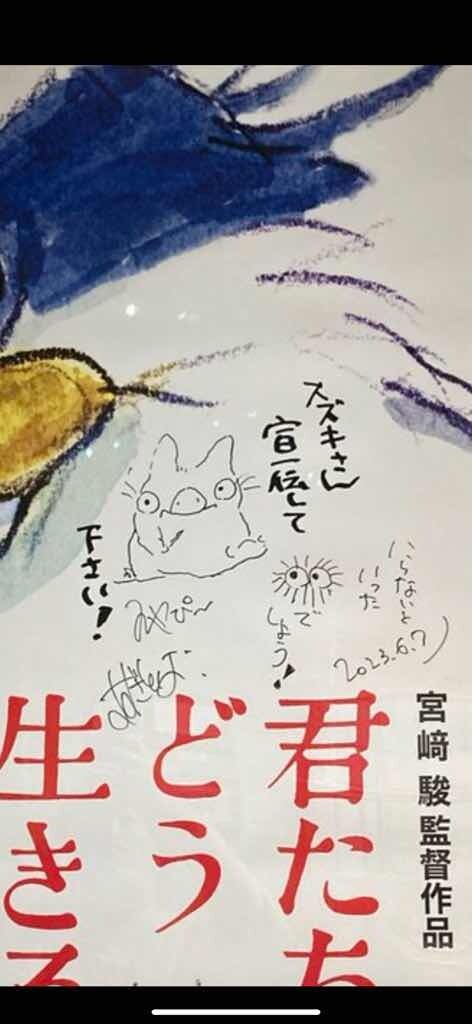 スズキさん
宣伝して
下さい!
みやぴー
いらないと
いった
でしょう!
2023.6.7
宮﨑 駿監督作品
君たち
どう
生きる